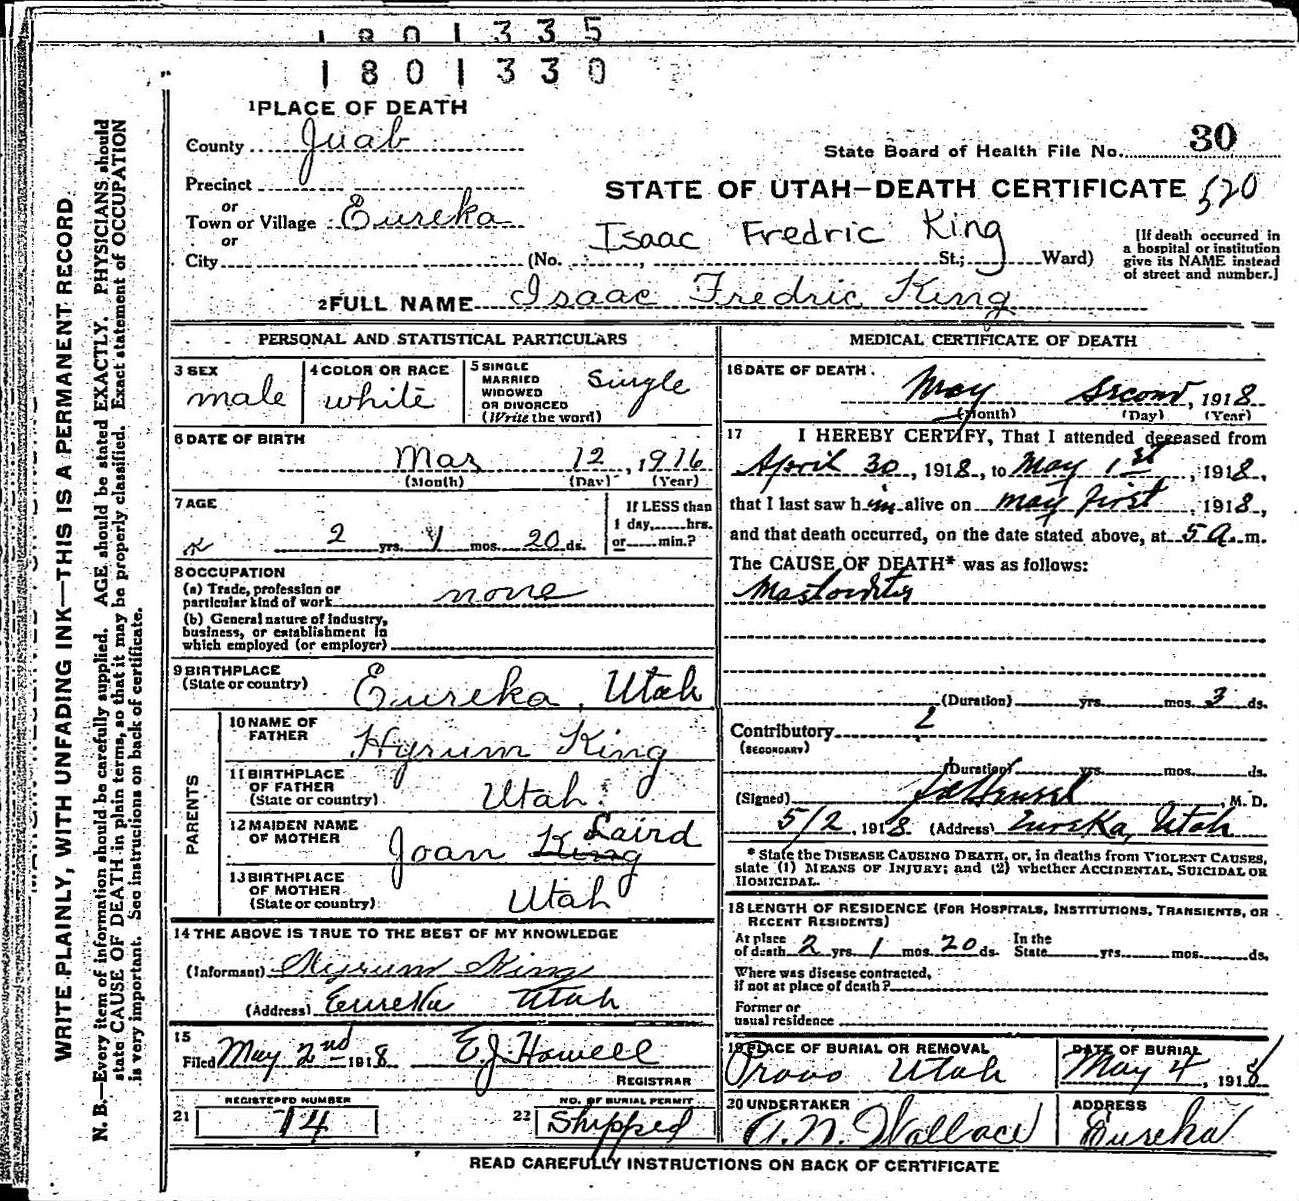 1801335
1801330
1 PLACE OF DEATH
County Juab
State Board of Health File No. 30
Precinct
or
STATE OF UTAH—DEATH CERTIFICATE 520
Town or Village Eureka
or
Isaac Fredric King
City (No. , St.; Ward)
[If death occurred in
a hospital or institution
give its NAME instead
of street and number.]
2 FULL NAME Isaac Fredric King
PERSONAL AND STATISTICAL PARTICULARS
3 SEX
male
4 COLOR OR RACE
white
5 SINGLE
MARRIED
WIDOWED
OR DIVORCED
(Write the word)
Single
6 DATE OF BIRTH
Mar 12, 1916
(Month) (Day) (Year)
7 AGE
2 yrs. 1 mos. 20 ds.
If LESS than
1 day, hrs.
or min.?
8 OCCUPATION
(a) Trade, profession or
particular kind of work none
(b) General nature of industry,
business, or establishment in
which employed (or employer)
9 BIRTHPLACE
(State or country) Eureka, Utah
PARENTS
10 NAME OF
FATHER Hyrum King
11 BIRTHPLACE
OF FATHER
(State or country) Utah
12 MAIDEN NAME
OF MOTHER Joan King Laird
13 BIRTHPLACE
OF MOTHER
(State or country) Utah
14 THE ABOVE IS TRUE TO THE BEST OF MY KNOWLEDGE
(Informant) Hyrum King
(Address) Eureka Utah
15
Filed May 2nd 1918 E.J. Howell
REGISTRAR
REGISTERED NUMBER
21 74
NO. OF BURIAL PERMIT
22 Shipped
MEDICAL CERTIFICATE OF DEATH
16 DATE OF DEATH
May Second, 1918
(Month) (Day) (Year)
17 I HEREBY CERTIFY, That I attended deceased from
April 30, 1918, to May 1st, 1918,
that I last saw him alive on May first, 1918,
and that death occurred, on the date stated above, at 5 A. m.
The CAUSE OF DEATH* was as follows:
(Duration) yrs. mos. 3 ds.
Contributory
(SECONDARY)
(Duration) yrs. mos. ds.
(Signed) , M. D.
5/2, 1918 (Address) Eureka, Utah
* State the DISEASE CAUSING DEATH, or, in deaths from VIOLENT CAUSES,
state (1) MEANS OF INJURY; and (2) whether ACCIDENTAL, SUICIDAL OR
HOMICIDAL.
18 LENGTH OF RESIDENCE (FOR HOSPITALS, INSTITUTIONS, TRANSIENTS, OR
RECENT RESIDENTS)
At place
of death 2 yrs. 1 mos. 20 ds. In the
State yrs. mos. ds.
Where was disease contracted,
if not at place of death?
Former or
usual residence
19 PLACE OF BURIAL OR REMOVAL
Provo Utah
DATE OF BURIAL
May 4, 1918
20 UNDERTAKER
A.N. Wallace
ADDRESS
Eureka
READ CAREFULLY INSTRUCTIONS ON BACK OF CERTIFICATE
WRITE PLAINLY, WITH UNFADING INK—THIS IS A PERMANENT RECORD.
N. B.—Every item of information should be carefully supplied. AGE should be stated EXACTLY. PHYSICIANS should
state CAUSE OF DEATH in plain terms, so that it may be properly classified. Exact statement of OCCUPATION
is very important. See instructions on back of certificate.